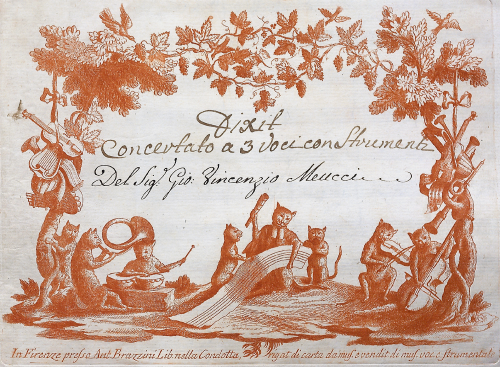 Dixit
Concertato a 3 voci con Strumenti
Del Sig.r Gio: Vincenzio Meucci
In Firenze presso Ant. Brazzini Lib. nella Condotta, rigat. di carta da mus. e vendit. di mus. voc. e strumentale